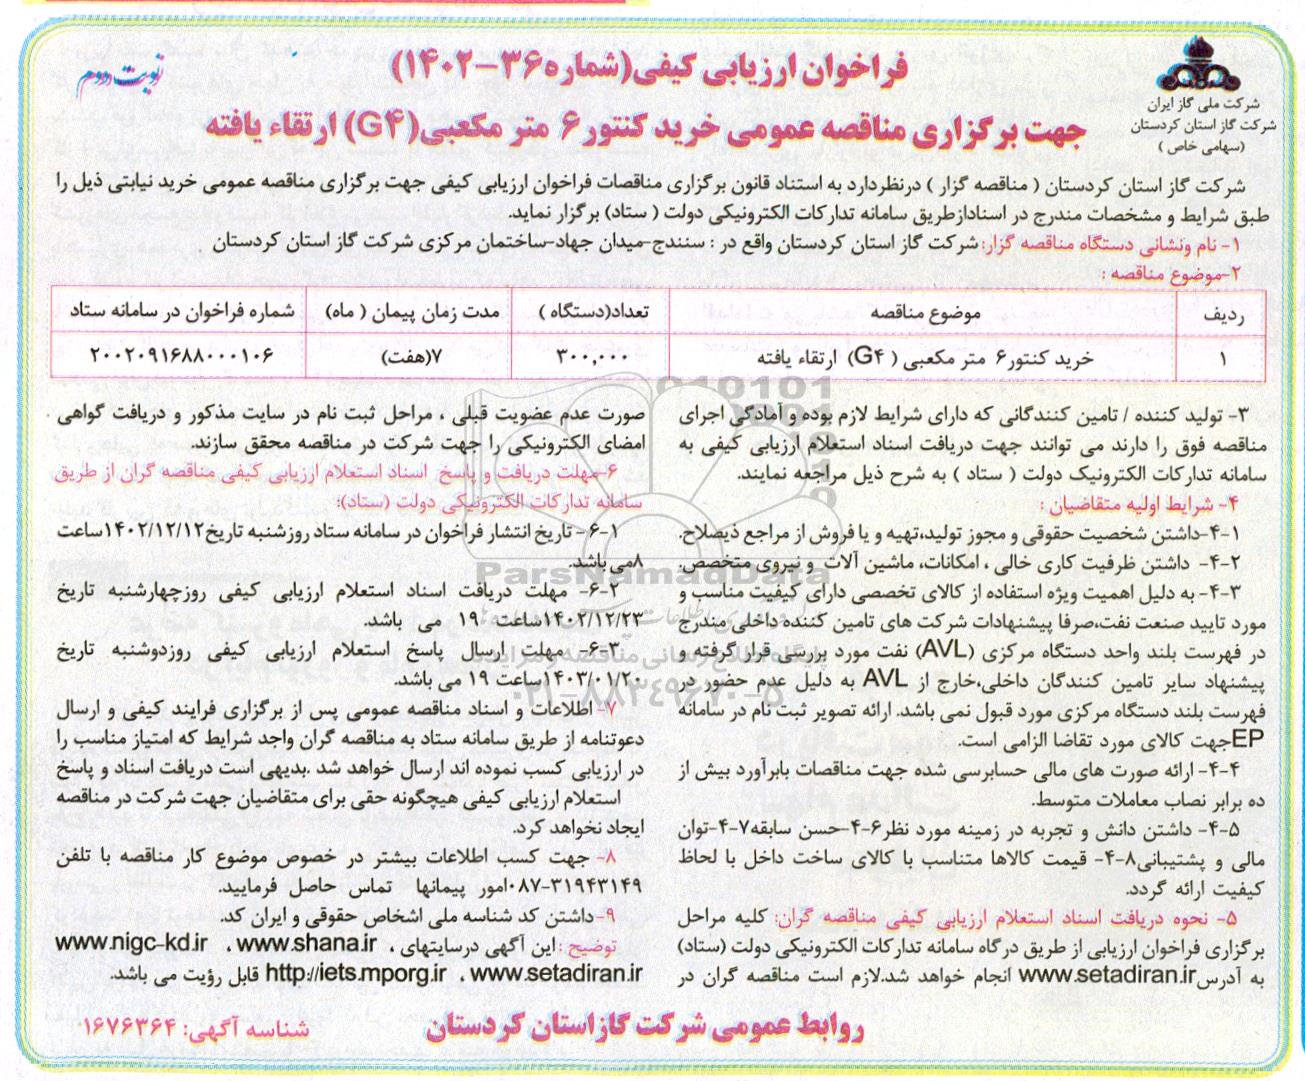 نوبت دوم
فراخوان ارزیابی کیفی(شماره۳۶-۱۴۰۲)
جهت برگزاری مناقصه عمومی خرید کنتور۶ متر مکعبی(G۴) ارتقاء یافته
شرکت ملی گاز ایران
شرکت گاز استان کردستان
(سهامی خاص )
شرکت گاز استان کردستان ( مناقصه گزار ) درنظردارد به استناد قانون برگزاری مناقصات فراخوان ارزیابی کیفی جهت برگزاری مناقصه عمومی خرید نیابتی ذیل را
طبق شرایط و مشخصات مندرج در اسنادازطریق سامانه تدارکات الکترونیکی دولت ( ستاد) برگزار نماید.
۱- نام ونشانی دستگاه مناقصه گزار: شرکت گاز استان کردستان واقع در : سنندج-میدان جهاد-ساختمان مرکزی شرکت گاز استان کردستان .
۲-موضوع مناقصه :
ردیف موضوع مناقصه تعداد(دستگاه ) مدت زمان پیمان ( ماه) شماره فراخوان در سامانه ستاد
۱ خرید کنتور۶ متر مکعبی ( G۴) ارتقاء یافته ۳۰۰,۰۰۰ ۷(هفت) ۲۰۰۲۰۹۱۶۸۸۰۰۰۱۰۶
۳- تولید کننده / تامین کنندگانی که دارای شرایط لازم بوده و آمادگی اجرای
مناقصه فوق را دارند می توانند جهت دریافت اسناد استعلام ارزیابی کیفی به
سامانه تدارکات الکترونیک دولت ( ستاد ) به شرح ذیل مراجعه نمایند.
۴- شرایط اولیه متقاضیان :
۴-۱-داشتن شخصیت حقوقی و مجوز تولید،تهیه و یا فروش از مراجع ذیصلاح.
۴-۲- داشتن ظرفیت کاری خالی ، امکانات، ماشین آلات و نیروی متخصص.
۴-۳- به دلیل اهمیت ویژه استفاده از کالای تخصصی دارای کیفیت مناسب و
مورد تایید صنعت نفت،صرفا پیشنهادات شرکت های تامین کننده داخلی مندرج
در فهرست بلند واحد دستگاه مرکزی (AVL) نفت مورد بررسی قرار گرفته و
پیشنهاد سایر تامین کنندگان داخلی،خارج از AVL به دلیل عدم حضور در
فهرست بلند دستگاه مرکزی مورد قبول نمی باشد. ارائه تصویر ثبت نام در سامانه
EPجهت کالای مورد تقاضا الزامی است.
۴-۴- ارائه صورت های مالی حسابرسی شده جهت مناقصات بابرآورد بیش از
ده برابر نصاب معاملات متوسط.
۴-۵- داشتن دانش و تجربه در زمینه مورد نظر۶-۴-حسن سابقه۷-۴-توان
مالی و پشتیبانی۸-۴- قیمت کالاها متناسب با کالای ساخت داخل با لحاظ
کیفیت ارائه گردد.
۵- نحوه دریافت اسناد استعلام ارزیابی کیفی مناقصه گران: کلیه مراحل
برگزاری فراخوان ارزیابی از طریق درگاه سامانه تدارکات الکترونیکی دولت (ستاد)
به آدرس www.setadiran.ir انجام خواهد شد.لازم است مناقصه گران در
صورت عدم عضویت قبلی ، مراحل ثبت نام در سایت مذکور و دریافت گواهی
امضای الکترونیکی را جهت شرکت در مناقصه محقق سازند.
۶-مهلت دریافت و پاسخ اسناد استعلام ارزیابی کیفی مناقصه گران از طریق
سامانه تدارکات الکترونیکی دولت (ستاد):
۶-۱- تاریخ انتشار فراخوان در سامانه ستاد روزشنبه تاریخ۱۴۰۲/۱۲/۱۲ساعت
۸می باشد.
۶-۲- مهلت دریافت اسناد استعلام ارزیابی کیفی روزچهارشنبه تاریخ
۱۴۰۲/۱۲/۲۳ساعت ۱۹ می باشد.
۶-۳- مهلت ارسال پاسخ استعلام ارزیابی کیفی روزدوشنبه تاریخ
۱۴۰۳/۰۱/۲۰ساعت ۱۹ می باشد.
۷- اطلاعات و اسناد مناقصه عمومی پس از برگزاری فرایند کیفی و ارسال
دعوتنامه از طریق سامانه ستاد به مناقصه گران واجد شرایط که امتیاز مناسب را
در ارزیابی کسب نموده اند ارسال خواهد شد .بدیهی است دریافت اسناد و پاسخ
استعلام ارزیابی کیفی هیچگونه حقی برای متقاضیان جهت شرکت در مناقصه
ایجاد نخواهد کرد.
۸- جهت کسب اطلاعات بیشتر در خصوص موضوع کار مناقصه با تلفن
۰۸۷-۳۱۹۴۳۱۴۹امور پیمانها تماس حاصل فرمایید.
۹-داشتن کد شناسه ملی اشخاص حقوقی و ایران کد.
توضیح :این آگهی درسایتهای ، www.shana.ir ، www.nigc-kd.ir
http://iets.mporg.ir ، www.setadiran.ir قابل رؤیت می باشد.
روابط عمومی شرکت گاز استان کردستان
شناسه آگهی: ۱۶۷۶۳۶۴
ParsNamadData
پایگاه اطلاع رسانی مناقصه و مزایده
۰۲۱-۸۸۳۴۹۶۷۰-۵